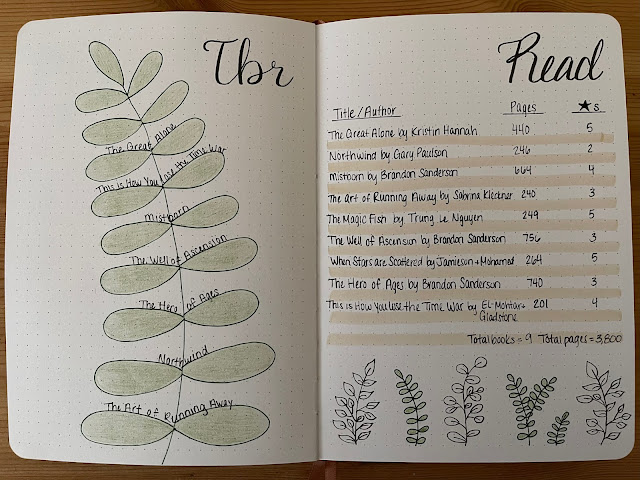 Tbr
The Great Alone
This is How You Lose the Time War
Mistborn
The Well of Ascension
The Hero of Ages
Northwind
The Art of Running Away
Read
Title/Author Pages ★s
The Great Alone by Kristin Hannah 440 5
Northwind by Gary Paulson 246 2
Mistborn by Brandon Sanderson 664 4
The Art of Running Away by Sabrina Kleckner 240 3
The Magic Fish by Trung Le Nguyen 249 5
The Well of Ascension by Brandon Sanderson 756 3
When Stars are Scattered by Jamieson + Mohamed 264 5
The Hero of Ages by Brandon Sanderson 740 3
This is How You Lose the Time War by El-Mohtar + 201 4
Gladstone
Total books = 9 Total pages = 3,800